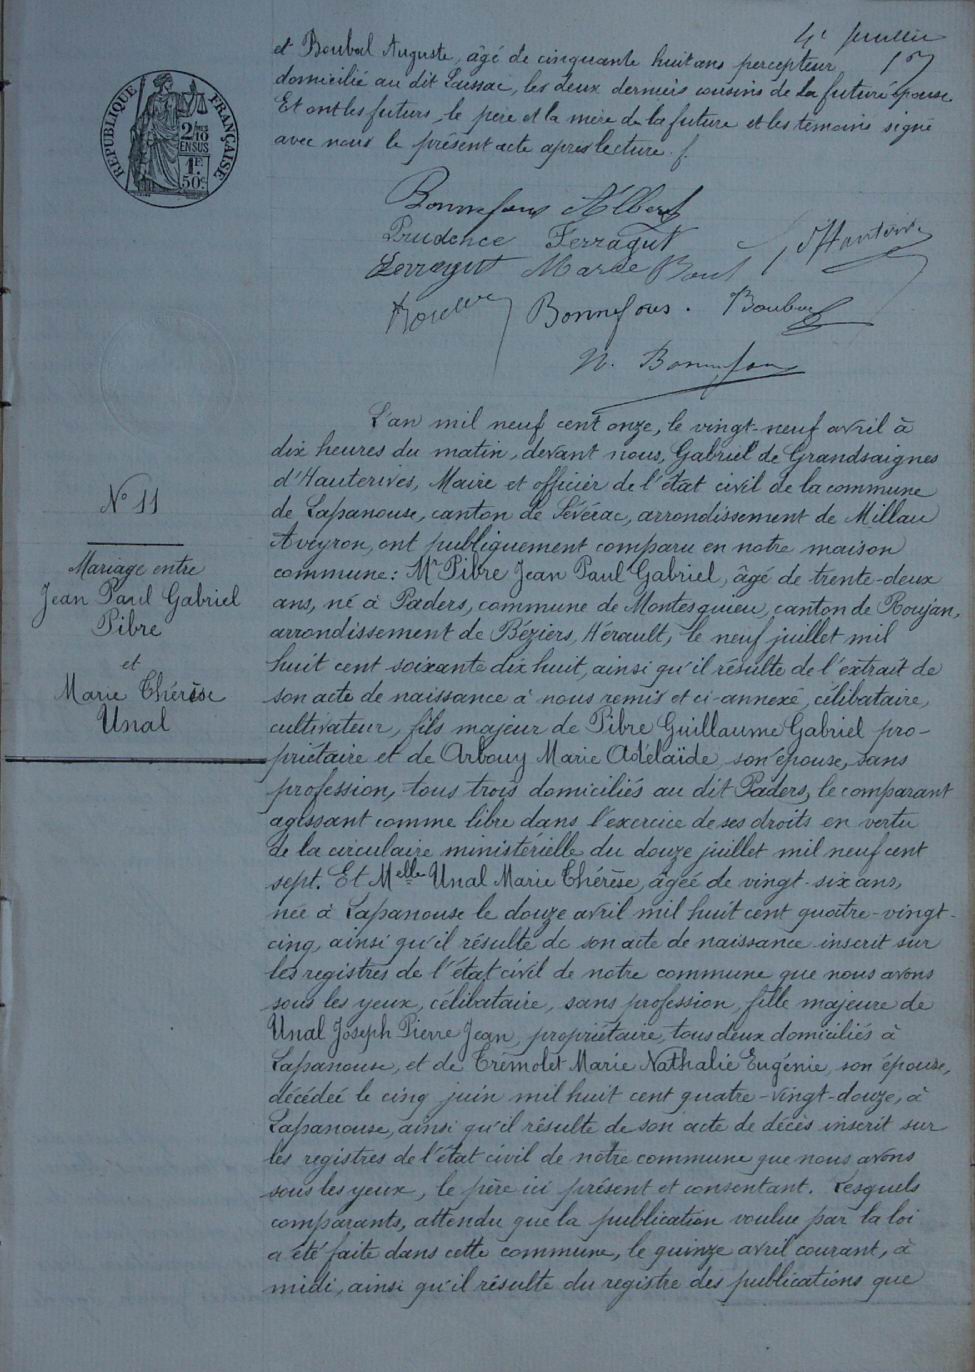 4e feuillet
et Boubal Auguste, âgé de cinquante huit ans percepteur
domicilié au dit Laissac, les deux derniers cousins de la future épouse
Et ont les futurs, le père et la mère de la future et les témoins signé
avec nous le présent acte après lecture.
RÉPUBLIQUE FRANÇAISE
2/10 EN SUS
1F. 50c.
Bonnefous Albert
Prudence Ferragut
Ferragut Marie d'Hauterives
Bonnefous. Boubal
N. Bonnefous
L'an mil neuf cent onze, le vingt-neuf avril à
dix heures du matin, devant nous, Gabriel de Grandsaignes
d'Hauterives, Maire et officier de l'état civil de la commune
de Lapanouse, canton de Sévérac, arrondissement de Millau
Aveyron, ont publiquement comparu en notre maison
commune: Mr Pibre Jean Paul Gabriel, âgé de trente-deux
ans, né à Paders, commune de Montesquieu, canton de Roujan,
arrondissement de Béziers, Hérault, le neuf juillet mil
huit cent soixante dix huit, ainsi qu'il résulte de l'extrait de
son acte de naissance à nous remis et ci-annexé, célibataire,
cultivateur, fils majeur de Pibre Guillaume Gabriel pro-
priétaire et de Arbouy Marie Adélaïde son épouse, sans
profession, tous trois domiciliés au dit Paders, le comparant
agissant comme libre dans l'exercice de ses droits en vertu
de la circulaire ministérielle du douze juillet mil neuf cent
sept. Et Melle Unal Marie Thérèse, âgée de vingt-six ans,
née à Lapanouse le douze avril mil huit cent quatre-vingt-
cinq, ainsi qu'il résulte de son acte de naissance inscrit sur
les registres de l'état civil de notre commune que nous avons
sous les yeux, célibataire, sans profession, fille majeure de
Unal Joseph Pierre Jean, propriétaire, tous deux domiciliés à
Lapanouse, et de Trémolet Marie Nathalie Eugénie, son épouse,
décédée le cinq juin mil huit cent quatre-vingt-douze, à
Lapanouse, ainsi qu'il résulte de son acte de décès inscrit sur
les registres de l'état civil de notre commune que nous avons
sous les yeux, le père ici présent et consentant. Lesquels
comparants, attendu que la publication voulue par la loi
a été faite dans cette commune, le quinze avril courant, à
midi, ainsi qu'il résulte du registre des publications que
No 11
Mariage entre
Jean Paul Gabriel
Pibre
et
Marie Thérèse
Unal